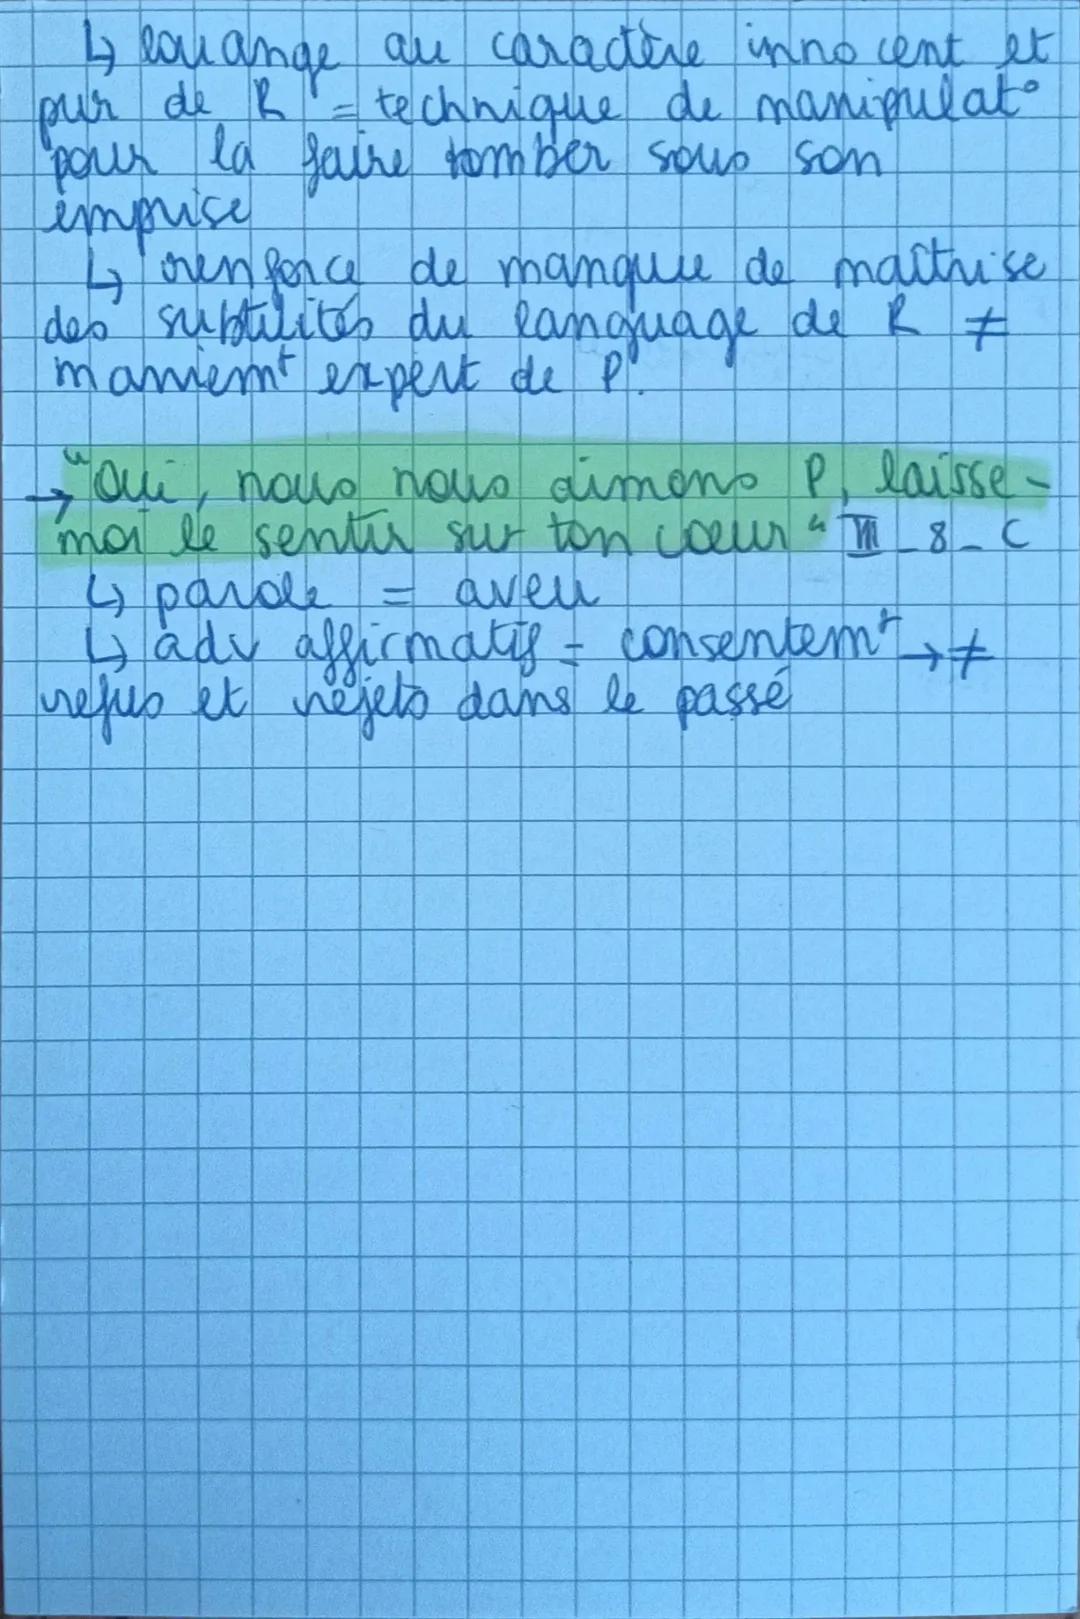 ↳ louange au caractère innocent et
pur de R = technique de manipulat°
pour la faire tomber sous son
emprise
↳ renforce de manque de maîtrise
des subtilités du language de R ≠
maniemt expert de P.
→ "Oui, nous nous aimons P, laisse-
moi le sentir sur ton cœur" III_8_C
↳ parole = aveu
↳ adv affirmatif = consentemt → ≠
refus et rejets dans le passé